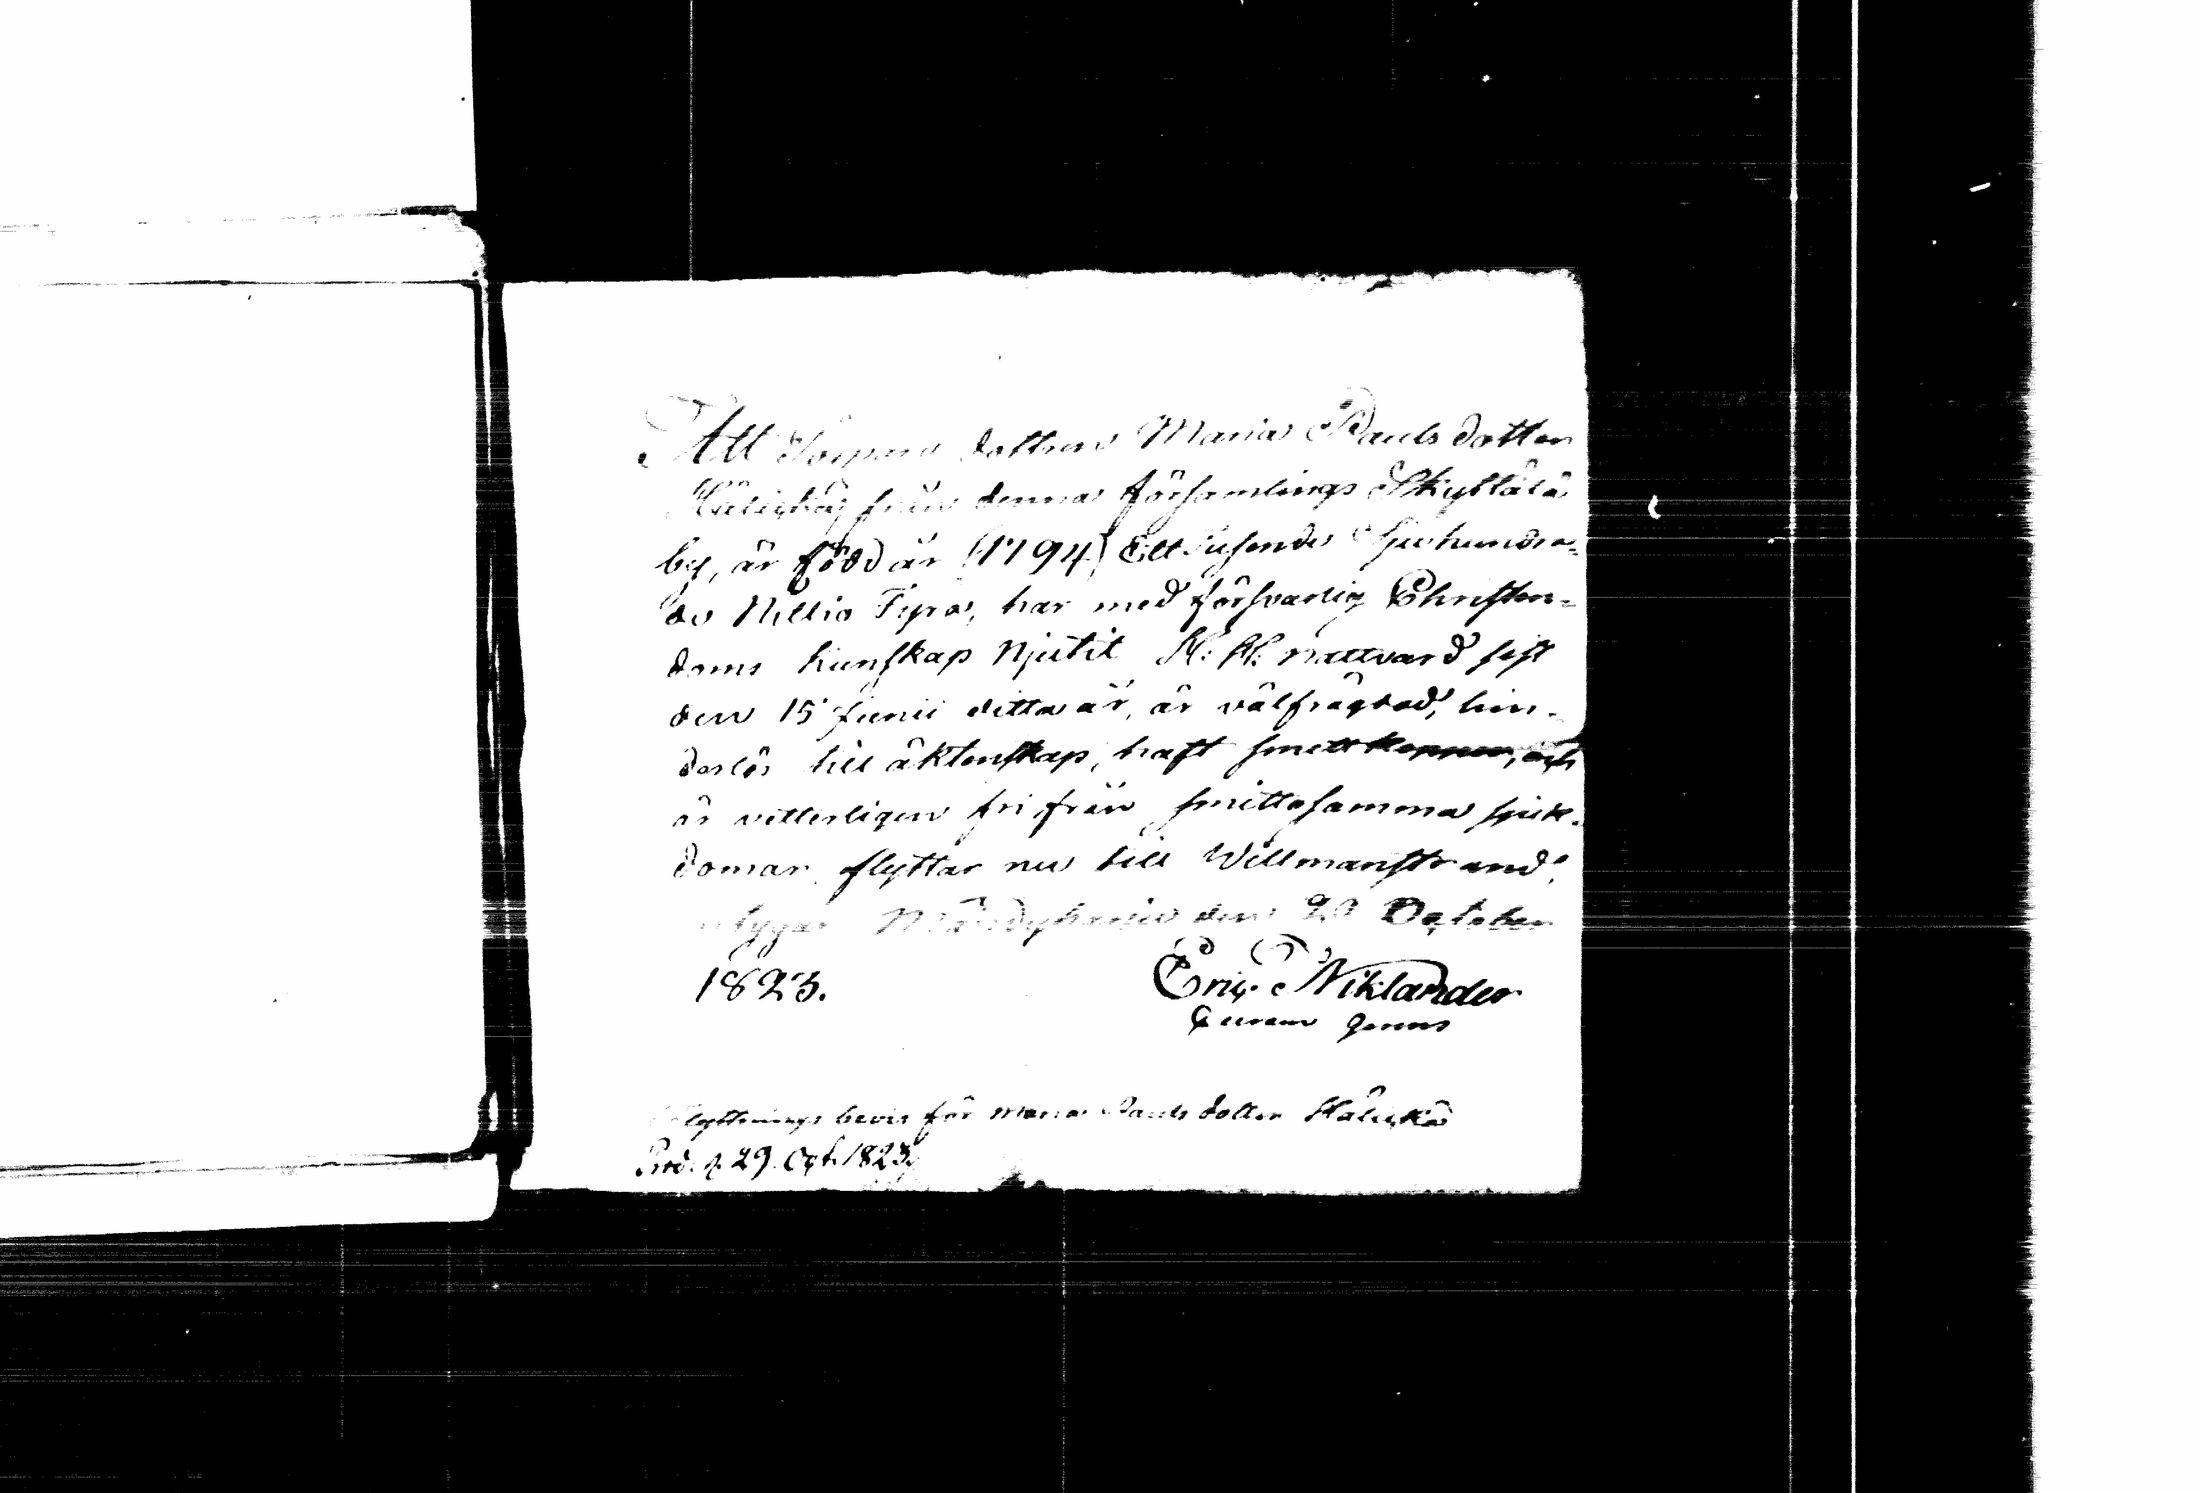 Att Torpare dottren Maria Pauls dotter
Häiyhä från denna församlings Skyttälä
by, är född år (1794) Ett Tusende Sjuhundra=
de Nittio Fyra, har med försvarlig Christen=
doms kunskap Njutit H: H: nattvard sist
den 15 Junii detta år, är välfrägdad, hin-
derlös till äktenskap, haft smittkoppor, och
är vetterligen fri från smittosamma sjuk-
domar, flyttar nu till Willmanstrand,
intygar Mäntyharju den 20 October
1823. Eric Niklander
Curam gerens
Flyttnings bevis för Maria Pauls dotter
Prod. d. 29. Oct. 1823.